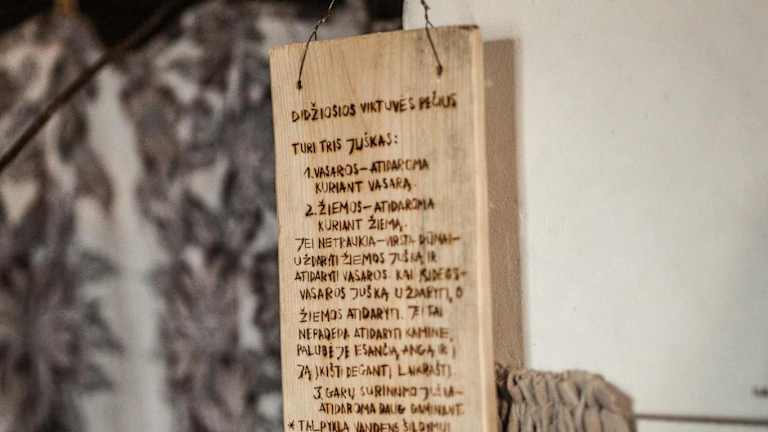 DIDŽIOSIOS VIRTUVĖS PEČIUS
TURI TRIS JUŠKAS:
1. VASAROS-ATIDAROMA
KURIANT VASARĄ.
2. ŽIEMOS-ATIDAROMA
KURIANT ŽIEMĄ.
JEI NETRAUKIA-VIRSTA DŪMAI-
UŽDARYTI ŽIEMOS JUŠKĄ IR
ATIDARYTI VASAROS. KAI ĮSIDEGS-
VASAROS JUŠKĄ UŽDARYTI, O
ŽIEMOS ATIDARYTI. JEI TAI
NEPADEDA ATIDARYTI KAMINE,
PALUBĖJE ESANČIĄ ANGĄ IR Į
JĄ ĮKIŠTI DEGANTĮ LAIKRAŠTĮ.
3. GARŲ SURINKIMO JUŠKA-
ATIDAROMA DAUG GAMINANT.
* TALPYKLA VANDENS ŠILDYMUI